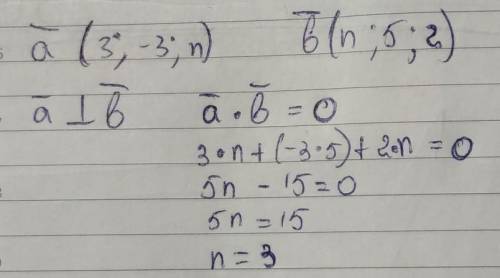 a̅ (3; -3; n) b̅ (n; 5; 2)
a̅ ⊥ b̅ a̅ · b̅ = 0
3·n + (-3·5) + 2·n = 0
5n - 15 = 0
5n = 15
n = 3